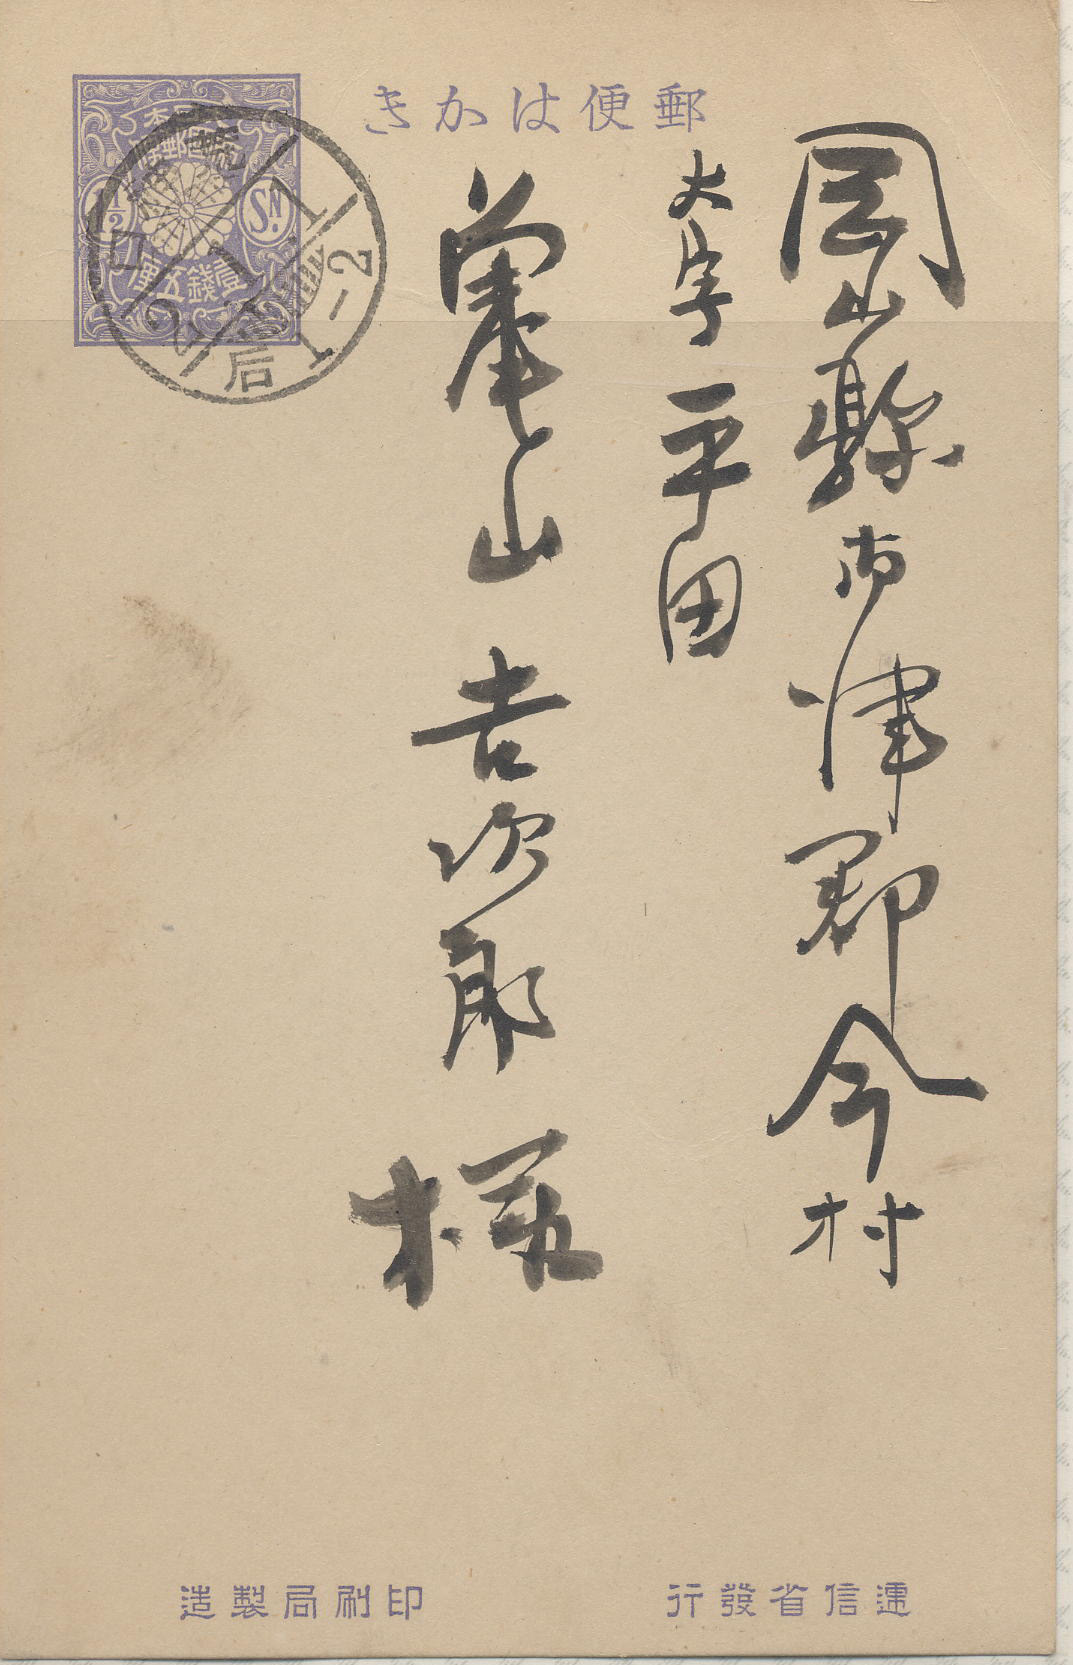 郵便はかき
岡山縣御津郡今村
大字平田
山吉次郎様
壹錢五厘
1½ SN.
后 1-2
逓信省發行
印刷局製造